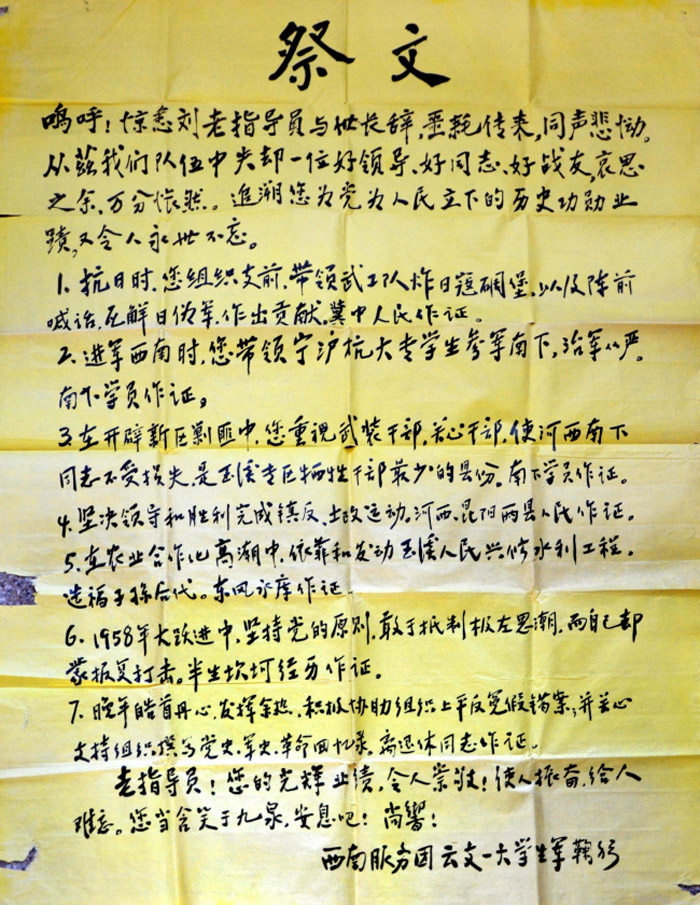 祭文
呜呼！惊悉刘老指导员与世长辞，噩耗传来，同声悲恸。
从兹我们队伍中失却一位好领导、好同志、好战友，哀思
之余，万分怅然。追溯您为党为人民立下的历史功勋业
蹟，又令人永世不忘。
1. 抗日时，您组织支前，带领武工队炸日寇碉堡，以及阵前
喊话，瓦解日伪军，作出贡献。冀中人民作证。
2. 进军西南时，您带领宁沪杭大专学生参军南下，治军从严。
南下学员作证。
3. 在开辟新区剿匪中，您重视武装干部，关心干部，使河西南下
同志不受损失，是玉溪专区牺牲干部最少的县份。南下学员作证。
4. 坚决领导和胜利完成镇反、土改运动。河西、昆阳两县人民作证。
5. 在农业合作化高潮中，依靠和发动玉溪人民兴修水利工程。
造福子孙后代。东风水库作证。
6. 1958年大跃进中，坚持党的原则，敢于抵制极左思潮，而自己却
蒙报复打击。半生坎坷经历作证。
7. 晚年皓首丹心，发挥余热，积极协助组织上平反冤假错案，并关心
支持组织撰写党史、军史、革命回忆录。离退休同志作证。
老指导员！您的光辉业绩，令人崇敬！使人振奋，给人
难忘。您当含笑于九泉，安息吧！尚飨！
西南服务团云文一大学生军鞠躬